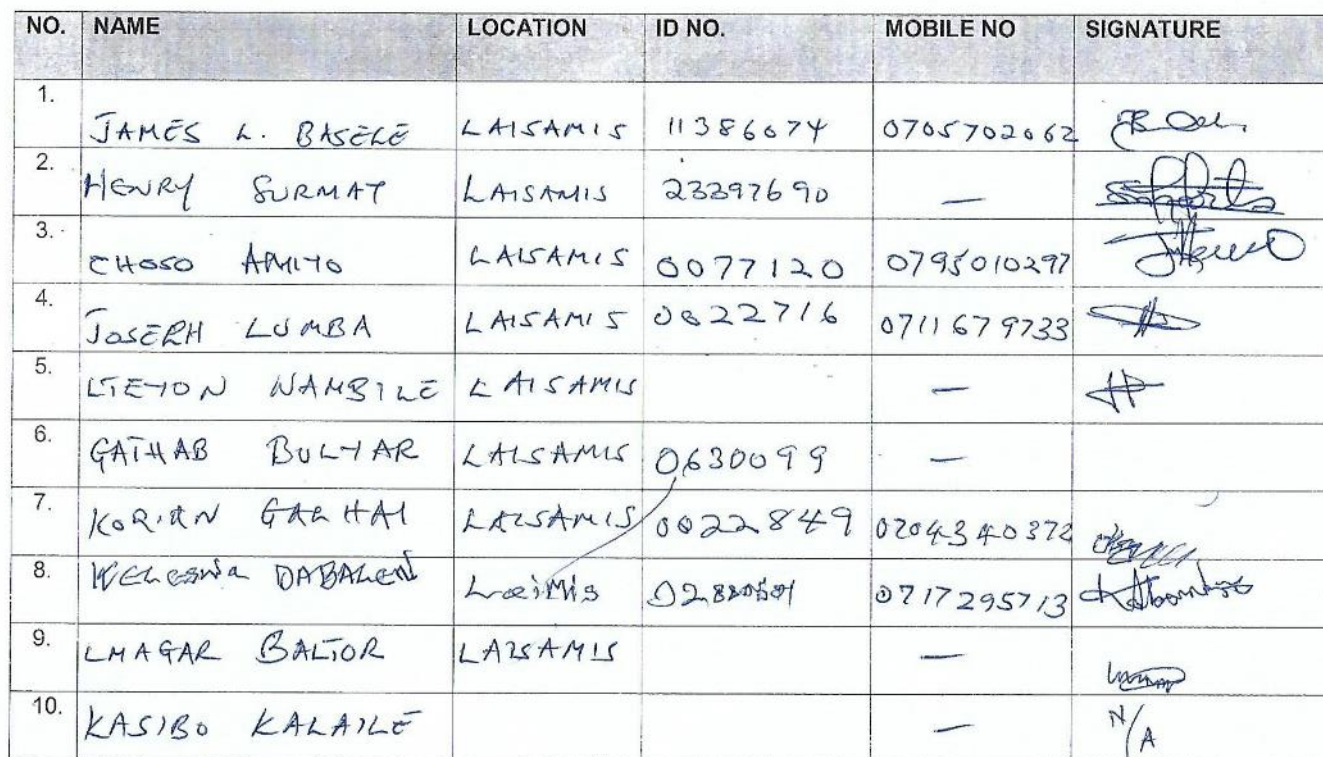 NO. NAME LOCATION ID NO. MOBILE NO SIGNATURE
1. JAMES L. BASELE LAISAMIS 11386074 0705702062
2. HENRY SURMAT LAISAMIS 23397690 —
3. CHOSO APMIYO LAISAMIS 0077120 0795010297
4. JOSEPH LUMBA LAISAMIS 0022716 0711679733
5. LTEYON NAMBILE LAISAMIS —
6. GATHAB BULYAR LAISAMIS 0630099 —
7. KORIAN GALHAI LAISAMIS 0022849 0204340372
8. DABALEN 0717295713
9. LMAGAR BALTOR LAISAMIS —
10. KASIBO KALAILE — N/A